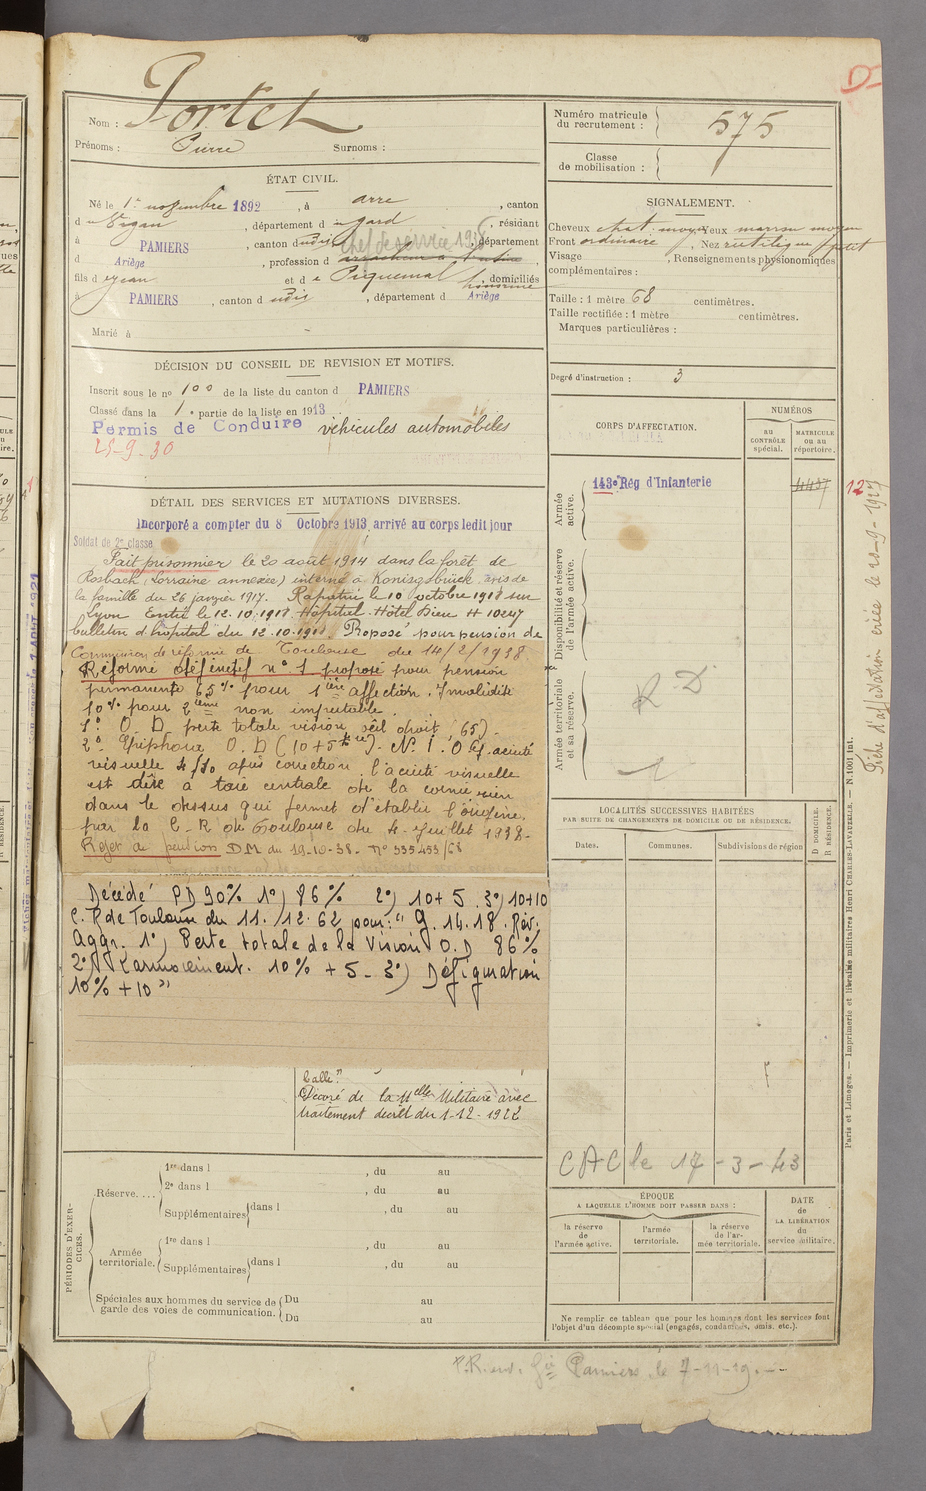 Nom : Portet
Prénoms : Pierre Surnoms :
ÉTAT CIVIL.
Né le 1er novembre 1892, à Arre, canton
d u Vigan, département d u Gard, résidant
à PAMIERS, canton dudit, département
chef de service 1926
d Ariège, profession d
fils d e Jean et d e Piquemal honorine, domiciliés
à PAMIERS, canton d udit, département d Ariège
Marié à
DÉCISION DU CONSEIL DE REVISION ET MOTIFS.
Inscrit sous le no 100 de la liste du canton d PAMIERS
Classé dans la 1e partie de la liste en 1913
Permis de Conduire véhicules automobiles
25-9-30
DÉTAIL DES SERVICES ET MUTATIONS DIVERSES.
Incorporé a compter du 8 Octobre 1913, arrivé au corps ledit jour
Soldat de 2e classe
Fait prisonnier le 20 août 1914 dans la forêt de
Rosbach (Lorraine annexée) interné à Konisgsbrück, avis de
la famille du 26 janvier 1917. Rapatrié le 10 octobre 1918 sur
Lyon Entré le 12.10.1918 Hôpital Hôtel Dieu # 10247
bulletin d'hôpital du 12.10.1918. Proposé pour pension de
Commission de réforme de Toulouse du 14/2/1938
Réformé définitif n° 1 proposé pour pension
permanente 65% pour 1ière affection. Invalidité
10% pour 2ème non imputable.
1° O. D perte totale vision œil droit (65).
2° Epiphora O. D (10+5 ). N. I. O G. acuité
visuelle 4/10 après correction. l'acuité visuelle
est dûe à taie centrale de la cornée rien
dans le dossier qui permet d'établir l'origine.
par la C.R de Toulouse du 4 Juillet 1938-
Rejet de pension DM du 19-10-38- N° 535453/68
Décédé PD 90% 1°) 86% 2°) 10+5 3°) 10+10
C.R de Toulouse du 11.12.62 pour: "G. 14.18. Rév.
Aggr. 1°) Perte totale de la Vision O.D 86%
2°) Larmoiement. 10% + 5 - 3°) Défiguration
10% + 10"
balle"
Décoré de la Mlle Militaire avec
traitement décret du 1-12-1922
PÉRIODES D'EXERCICES.
Réserve....
1re dans l , du au
2e dans l , du au
Supplémentaires dans l , du au
Armée territoriale.
1re dans l , du au
Supplémentaires dans l , du au
Spéciales aux hommes du service de garde des voies de communication.
Du au
Du au
Numéro matricule du recrutement : 575
Classe de mobilisation :
SIGNALEMENT.
Cheveux chat. moyen Yeux marron moyen
Front ordinaire, Nez rectiligne petit
Visage , Renseignements physionomiques
complémentaires :
Taille : 1 mètre 68 centimètres.
Taille rectifiée : 1 mètre centimètres.
Marques particulières :
Degré d'instruction : 3
CORPS D'AFFECTATION.
NUMÉROS
au contrôle spécial.
MATRICULE ou au répertoire.
Armée active.
143e Rég d'Infanterie
4437
12
Disponibilité et réserve de l'armée active.
Armée territoriale et sa réserve.
R D
LOCALITÉS SUCCESSIVES HABITÉES
PAR SUITE DE CHANGEMENTS DE DOMICILE OU DE RÉSIDENCE.
D DOMICILE.
R RÉSIDENCE.
Dates. Communes. Subdivisions de région
CAC le 17-3-43
ÉPOQUE
A LAQUELLE L'HOMME DOIT PASSER DANS :
la réserve de l'armée active.
l'armée territoriale.
la réserve de l'armée territoriale.
DATE de LA LIBÉRATION du service militaire.
Ne remplir ce tableau que pour les hommes dont les services font
l'objet d'un décompte spécial (engagés, condamnés, omis, etc.).
Fiche d'affectation créée le 20-9-1927
Paris et Limoges. — Imprimerie et librairie militaires Henri CHARLES-LAVAUZELLE. — N. 1001 int.
Pamiers, le 7-11-19.